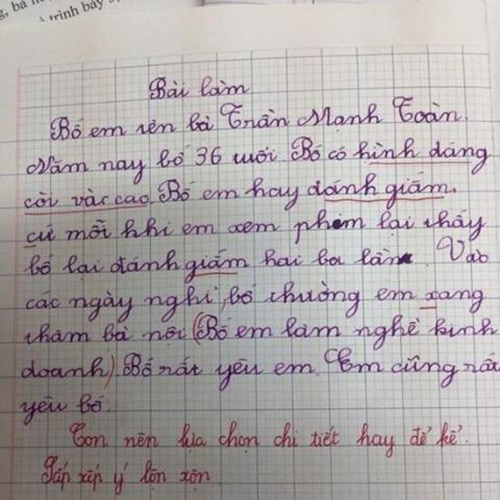 trình bày
Bài làm
Bố em tên là Trần Mạnh Toàn.
Năm nay bố 36 tuổi. Bố có hình dáng
còi và cao. Bố em hay đánh giấm.
cứ mỗi khi em xem phim lại thấy
bố lại đánh giấm hai ba lần. Vào
các ngày nghỉ, bố thường em xang
thăm bà nội (Bố em làm nghề kinh
doanh). Bố rất yêu em. Em cũng rất
yêu bố.
Con nên lựa chọn chi tiết hay để kể.
Sắp xếp ý lộn xộn